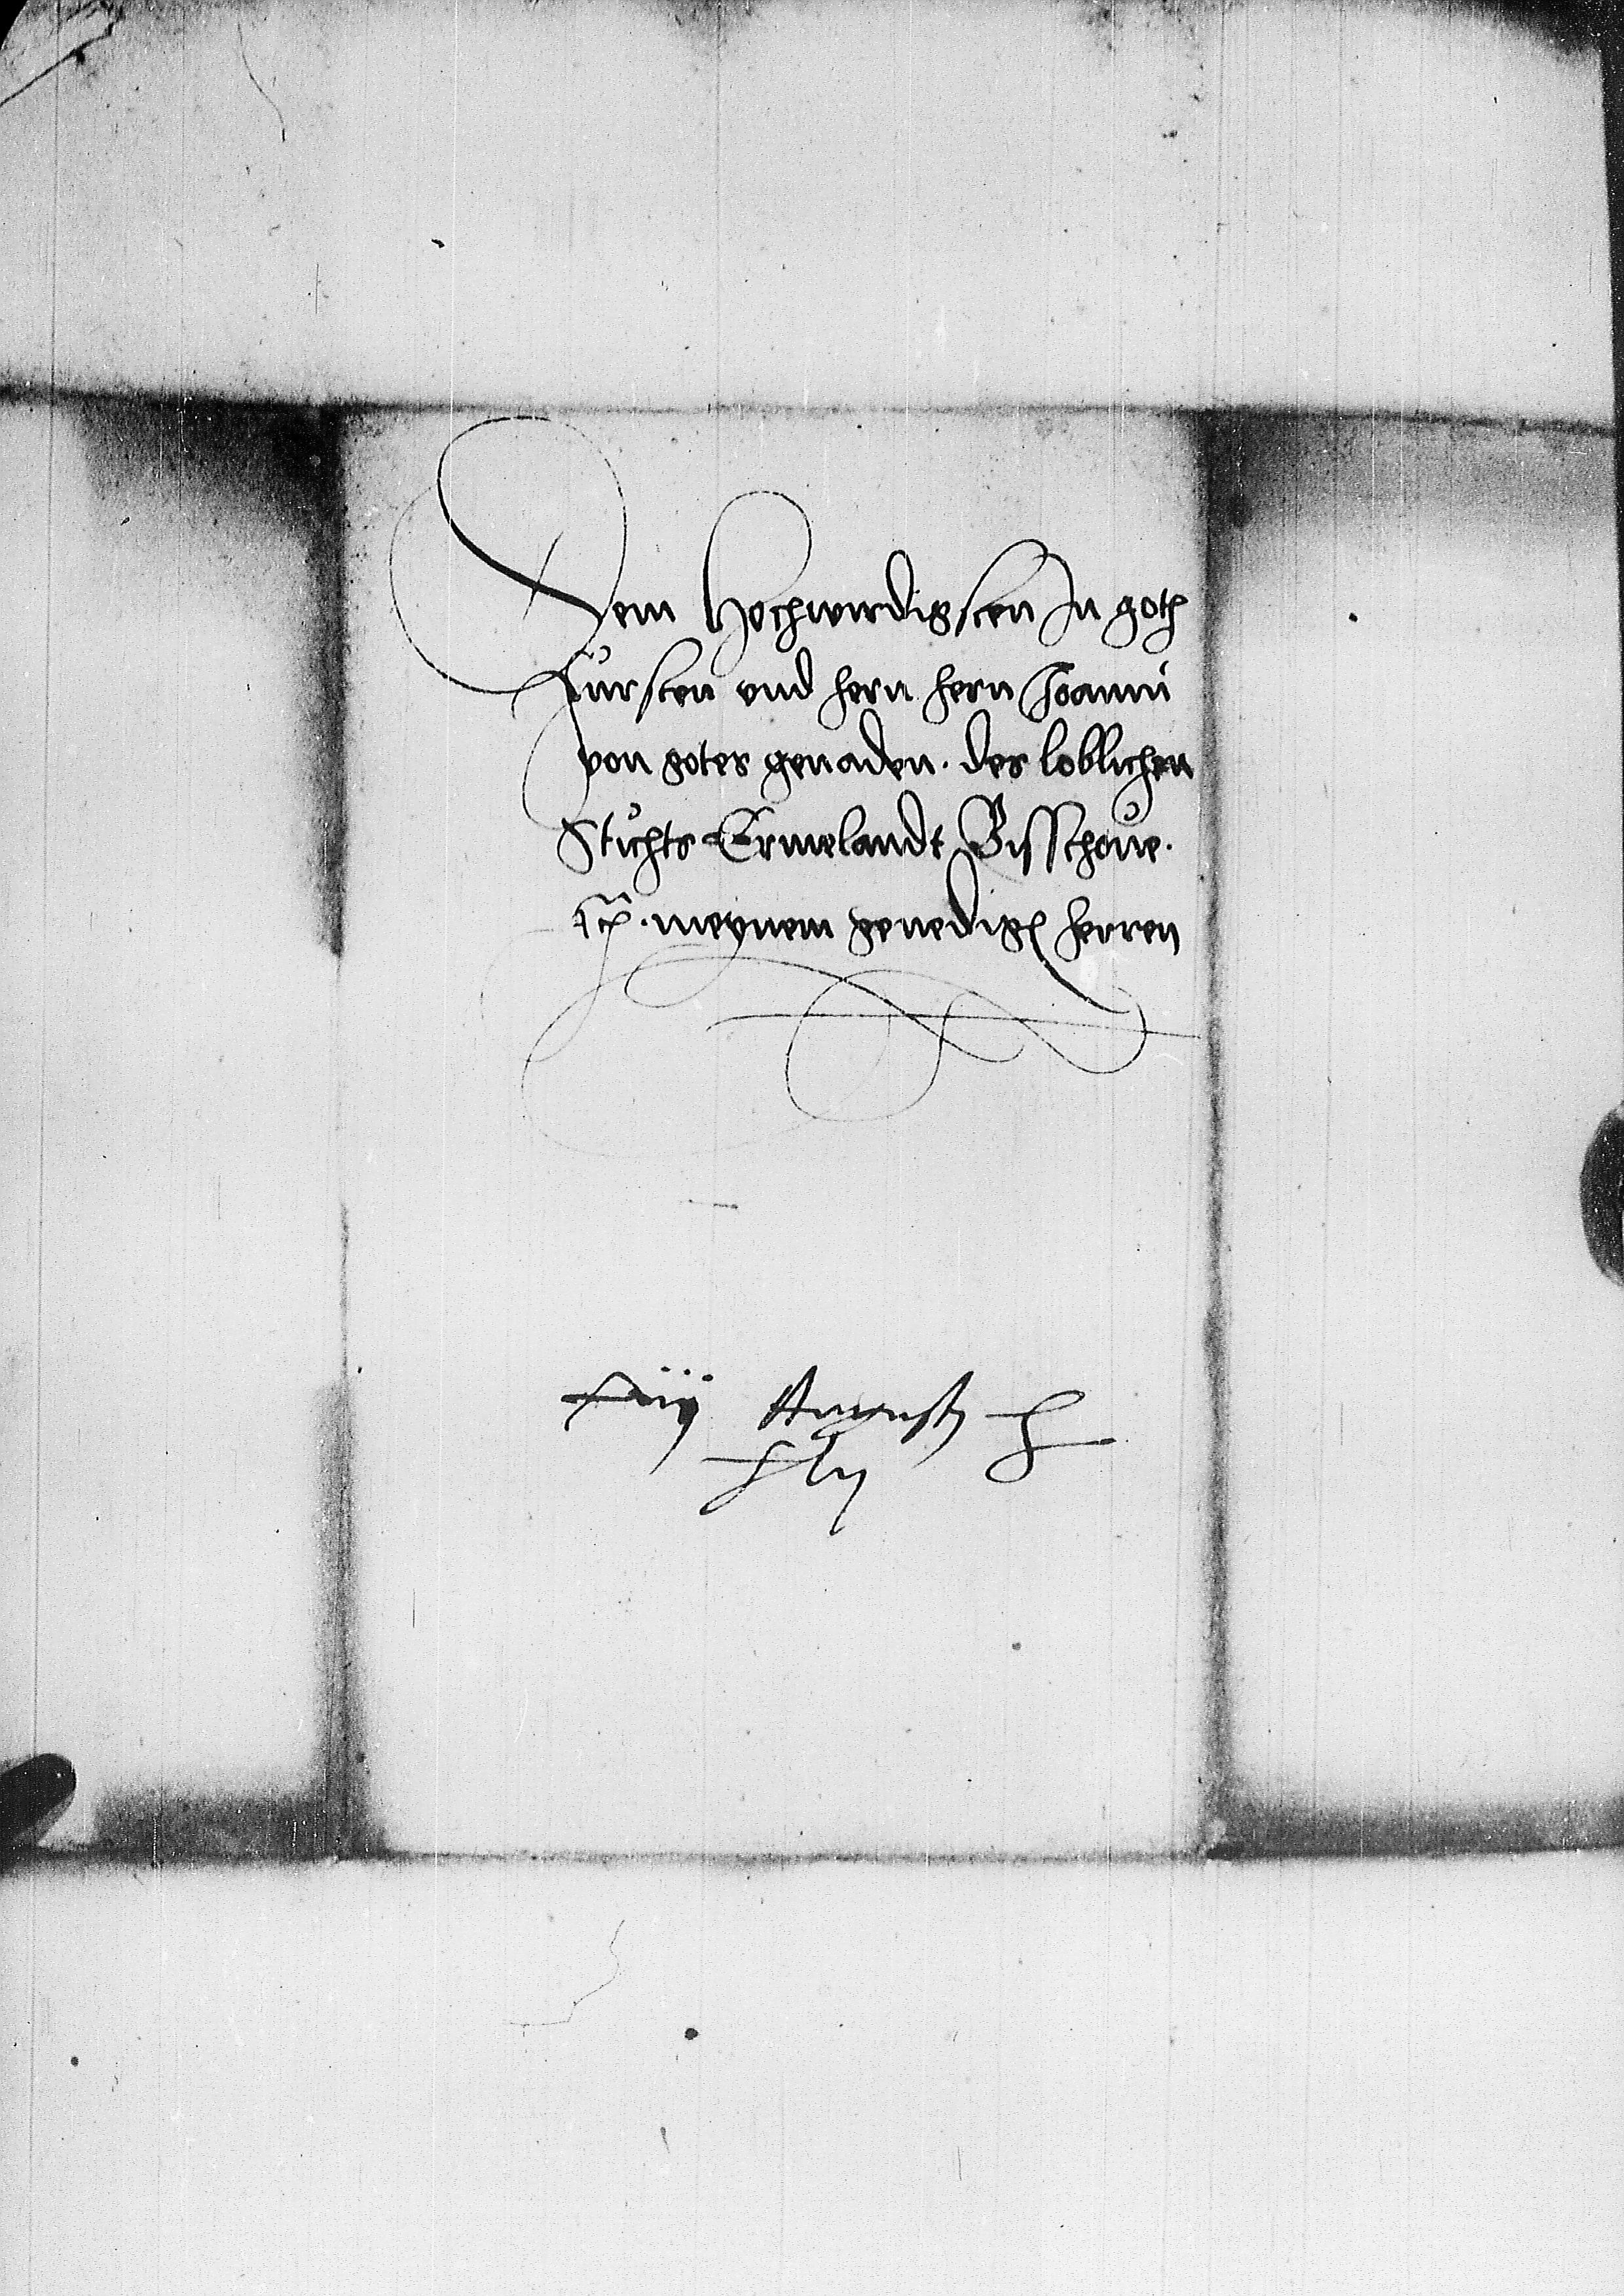 Dem Hochwirdigsten In goth
Fursten vnd hern hern Joanni
von gotes genaden. des loblichen
Stichts Ermelandt Bisschove.
ꝛc. meynem genedigen herren
xiij Augusti